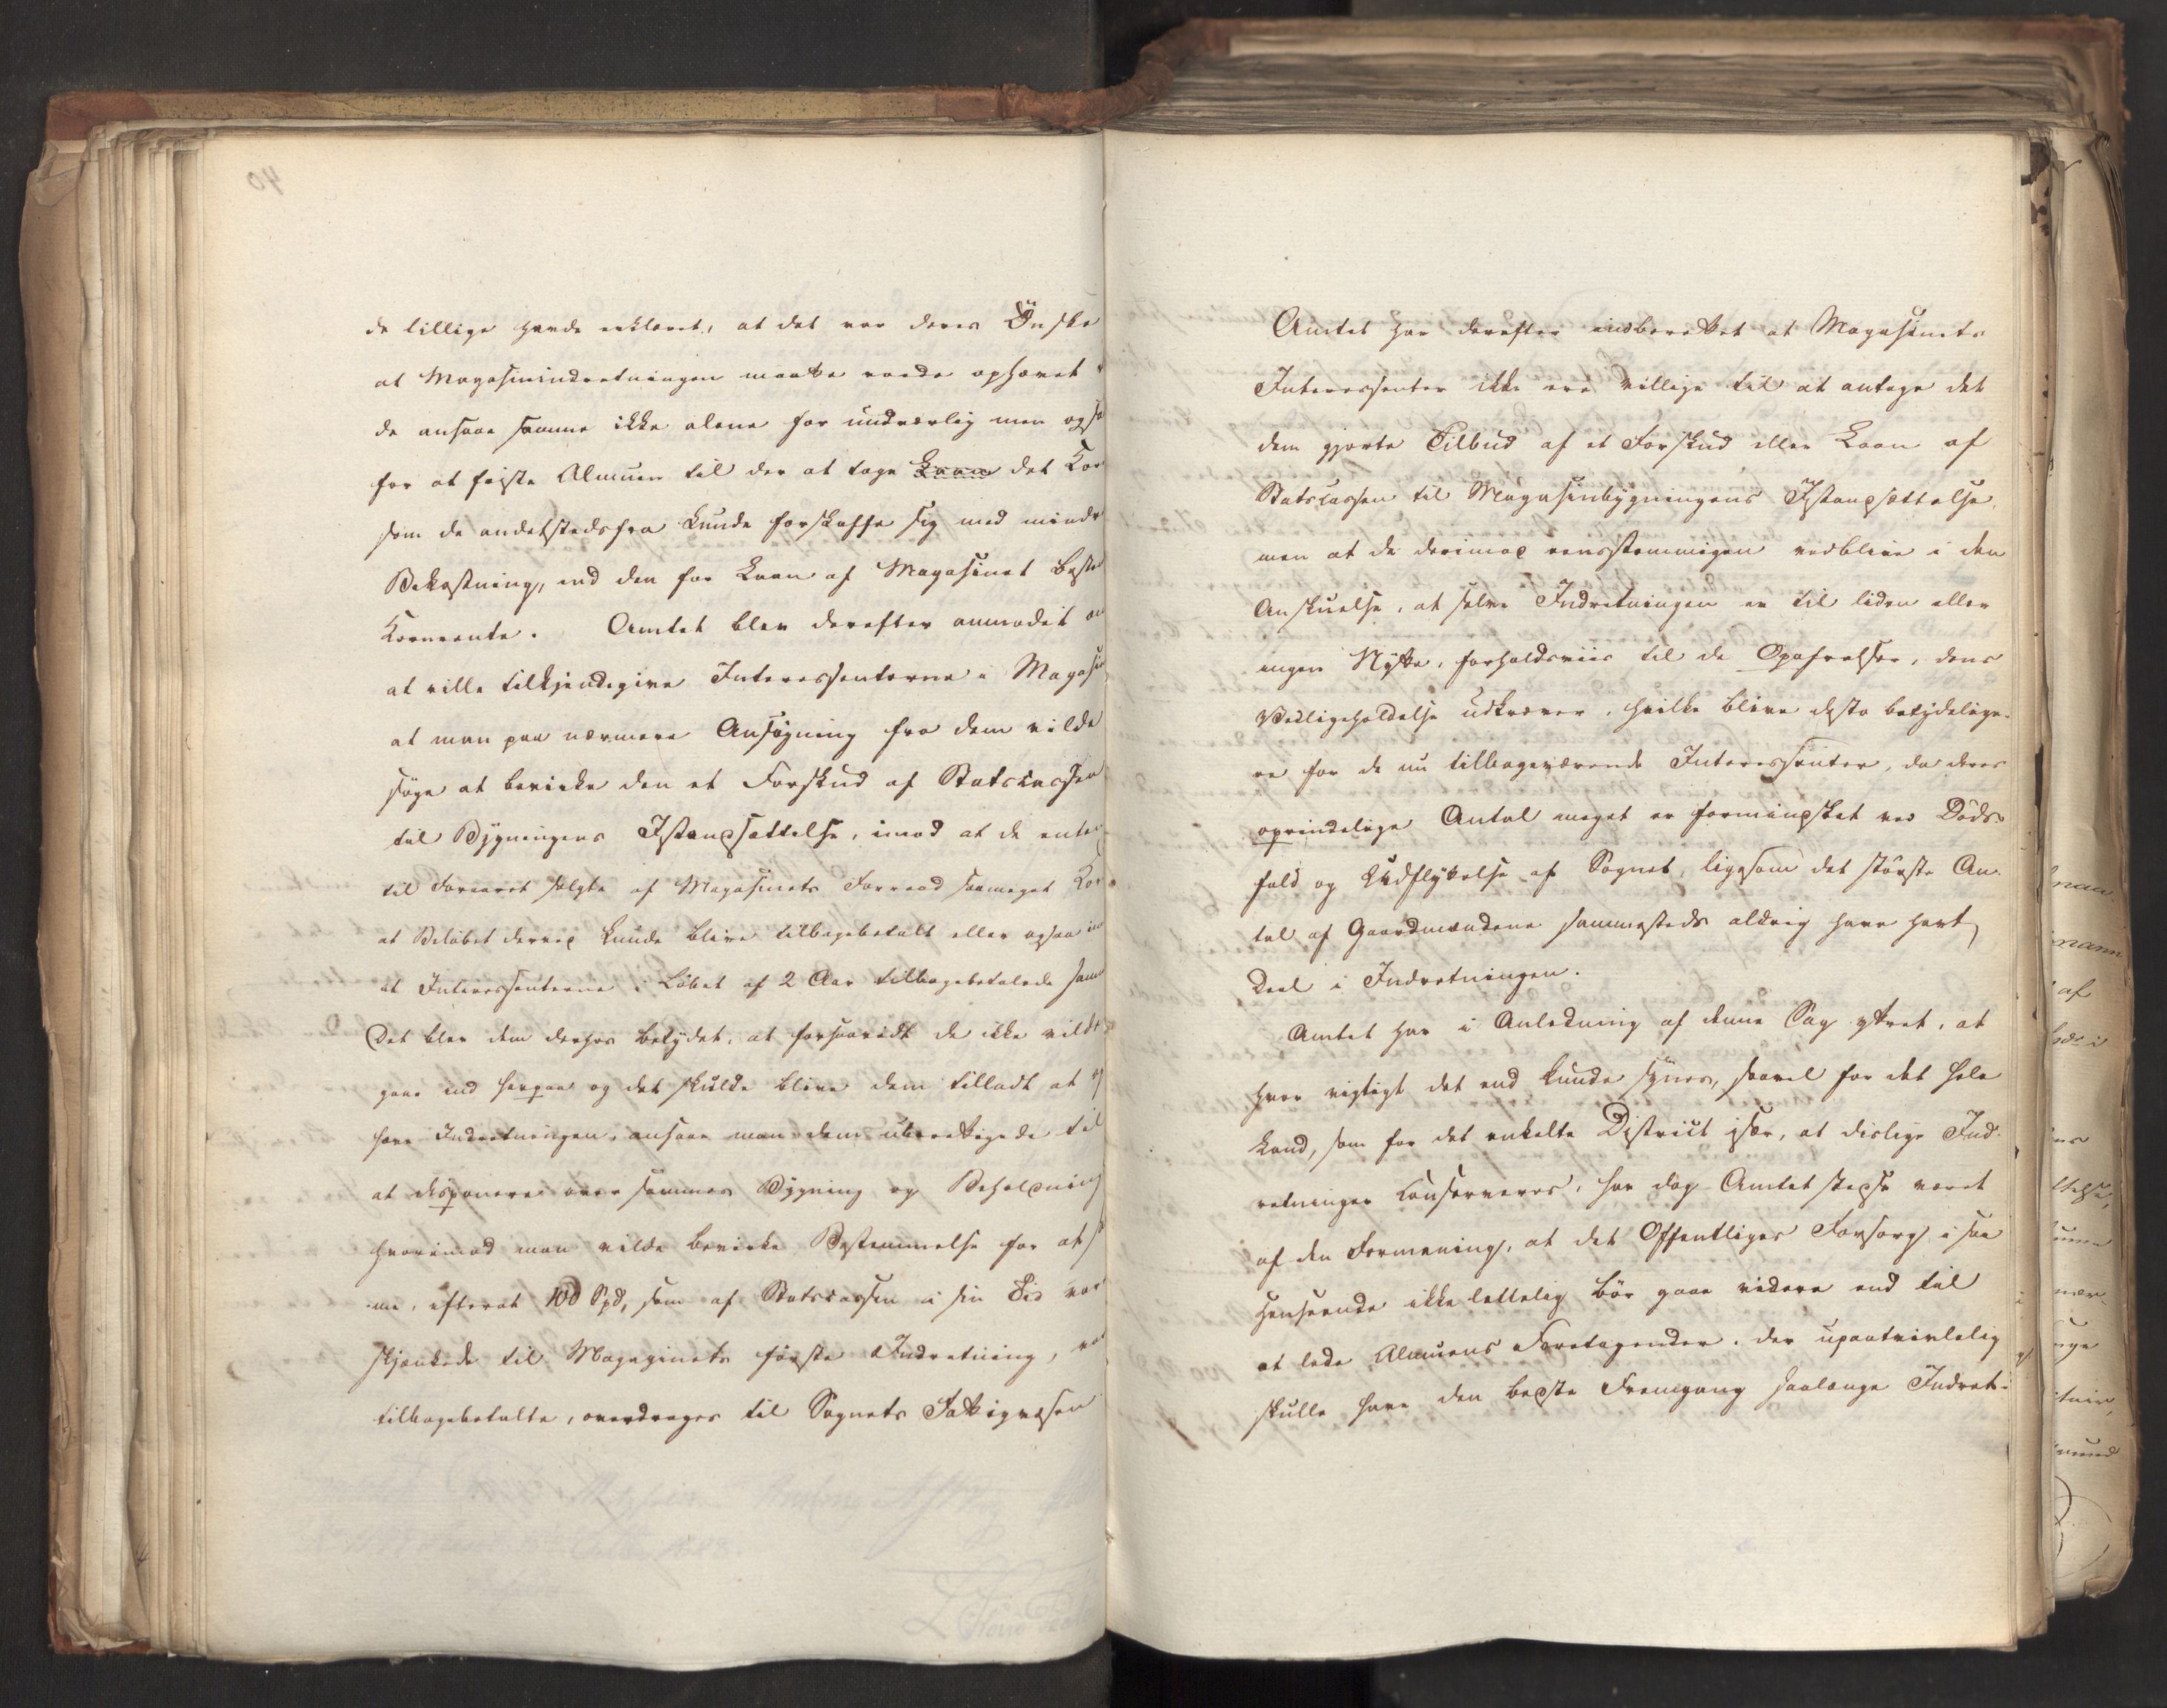 de tillige havde erklæret, at det var deres Ønske
at Magasinindretningen maatte vorde ophævet
de ansaae samme ikke alene for undværlig men ogsaa
for at friste Almuen til der at tage Laan det Kor
som de andetstedsfra kunde forskaffe sig med mindre
Bekostning, end den for Laan af Magasinet bestemte
Kornrente. Amtet blev derefter anmodet om
at ville tilkjendegive Interessenterne i Magasinet
at man paa nærmere Ansøgning fra dem vilde
søge at bevirke den et Forskud af Statscassen
til Bygningens Istandsættelse, imod at de enten
til Foraaret solgte af Magasinets Forraad saameget Kor
at Beløbet derved kunde blive tilbagebetalt eller ogsaa
at Interessenterne i Løbet af 2 Aar tilbagebetalede samme
Det blev dem derhos betydet, at forsaavidt de ikke vilde
gaae ind herpaa og det skulde blive dem tilladt at op
hæve Indretningen, ansaae man dem uberettigede til
at disponere over sammes Bygning og Beholdning
hvorimod man vilde bevirke Bestemmelse for at sam
me, efterat 100 Spd, som af Statscassen i sin Tid var
skjænkede til Magazinets første Indretning, var
tilbagebetalte, overdroges til Sognets Fattigvæsen
Amtet har derefter indberettet at Magasinets
Interessenter ikke ere villige til at antage det
dem gjorte Tilbud af et Forskud eller Laan af
Statscassen til Magasinbygningens Istandsættelse,
men at de derimod eensstemmigen vedblive i den
Anskuelse, at selve Indretningen er til liden eller
ingen Nytte, forholdsviis til de Opofrelser, dens
Vedligeholdelse udkræver, hvilke blive desto betydelige-
re for de nu tilbageværende Interessenter, da deres
oprindelige Antal meget er formindsket ved Døds-
fald og Udflyttelse af Sognet, ligesom det største An-
tal af Gaardmændene sammesteds aldrig have havt
Deel i Indretningen.
Amtet har i Anledning af denne Sag yttret, at
hvor vigtigt det end kunde synes, saavel for det hele
Land, som for det enkelte District især, at dislige Ind-
retninger conserveres, har dog Amtet stedse været
af den Formening, at det Offentliges Forsorg i saa
Henseende ikke lettelig bør gaae videre end til
at lede Almuens Foretagender, der upaatvivlelig
skulle have den bedste Fremgang saalænge Indret-